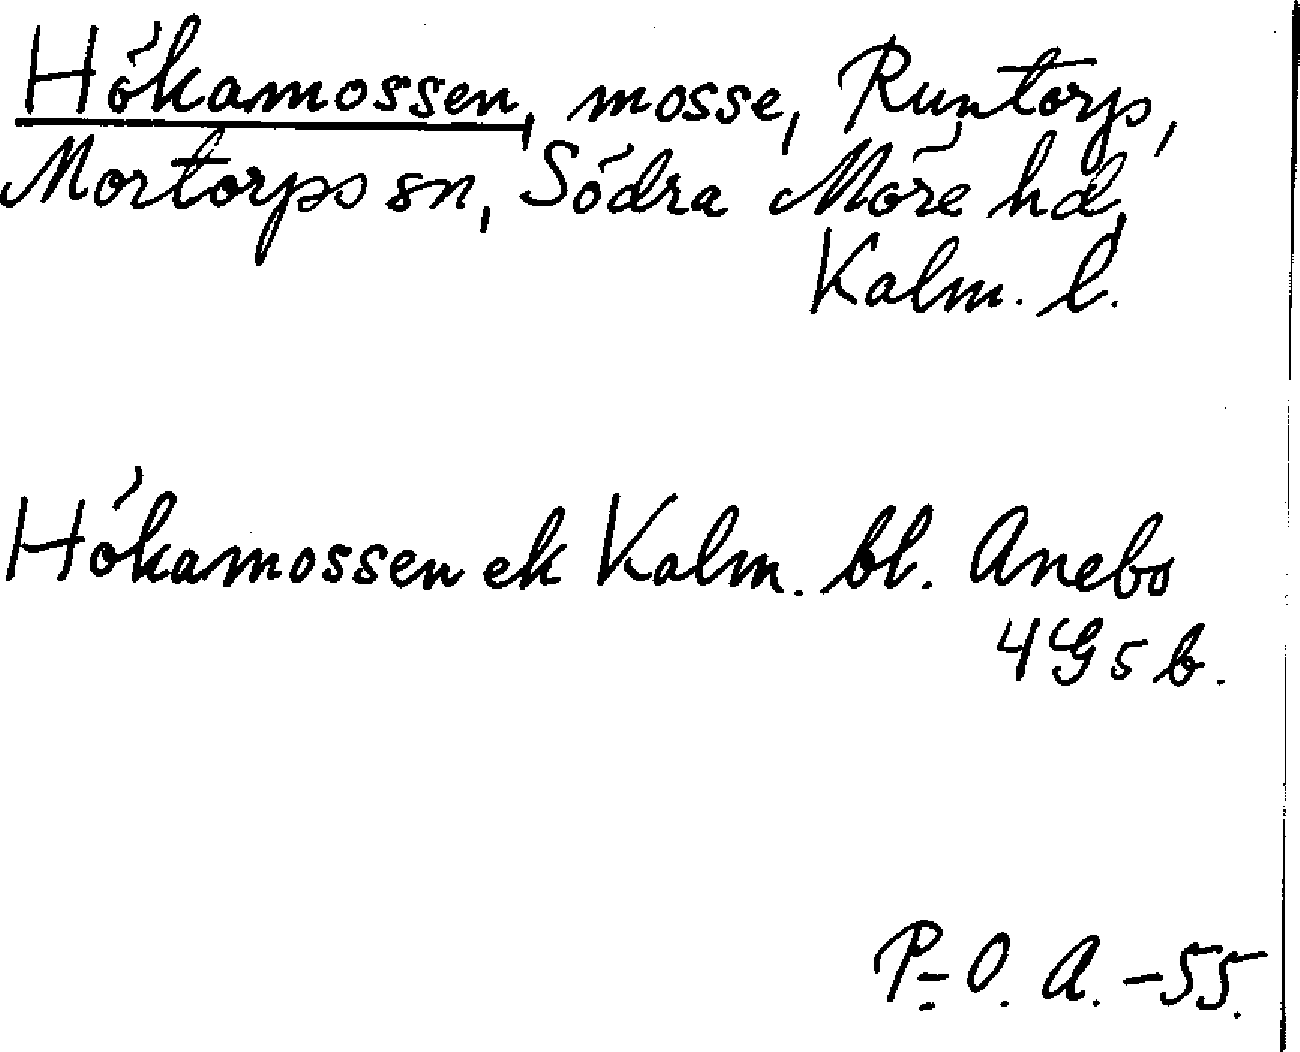 Hökamossen, mosse, Runtorp,
Mortorps sn, Södra Möre hd,
Kalm. l.
Hökamossen ek Kalm. bl. Anebo
4G5b.
P.-O. A. -55.